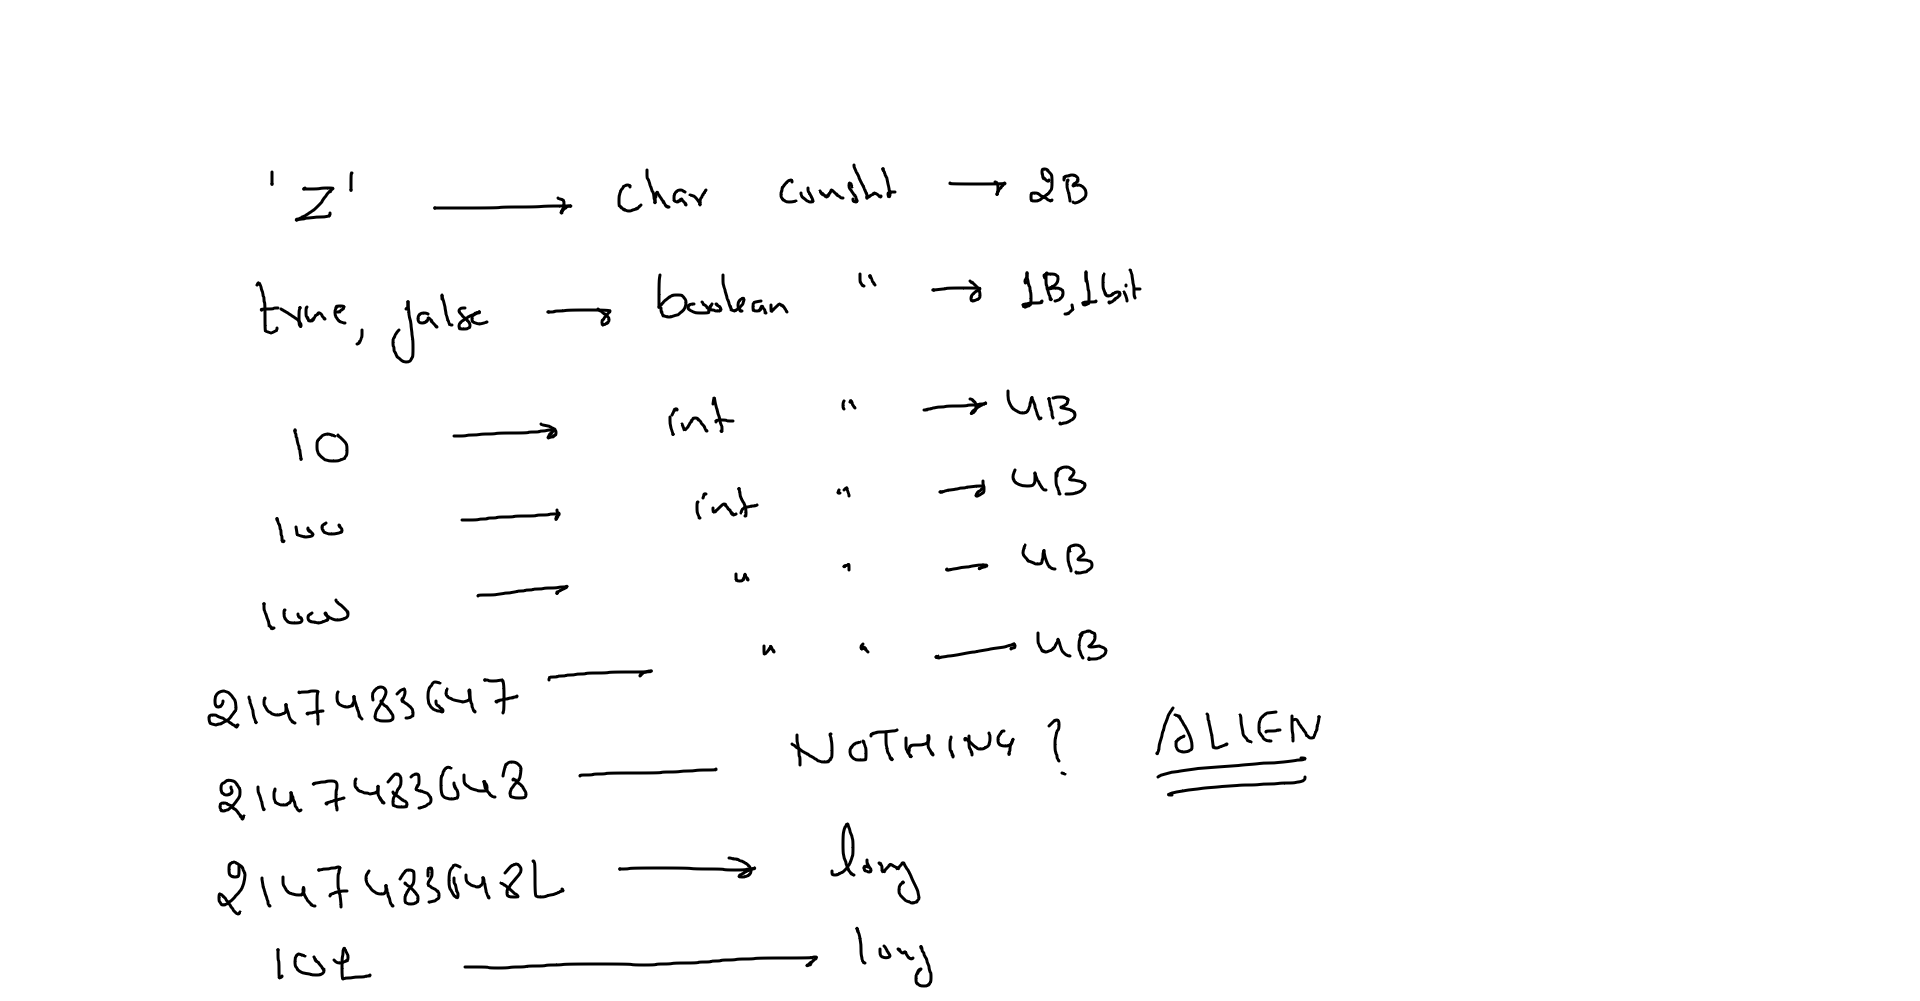 'Z' → char constt → 2B
true, false → boolean " → 1B, 1bit
10 → int " → 4B
100 → int " → 4B
1000 — " " — 4B
2147483647 — " " — 4B
2147483648 — NOTHING? ALIEN
2147483648L → long
10L → long